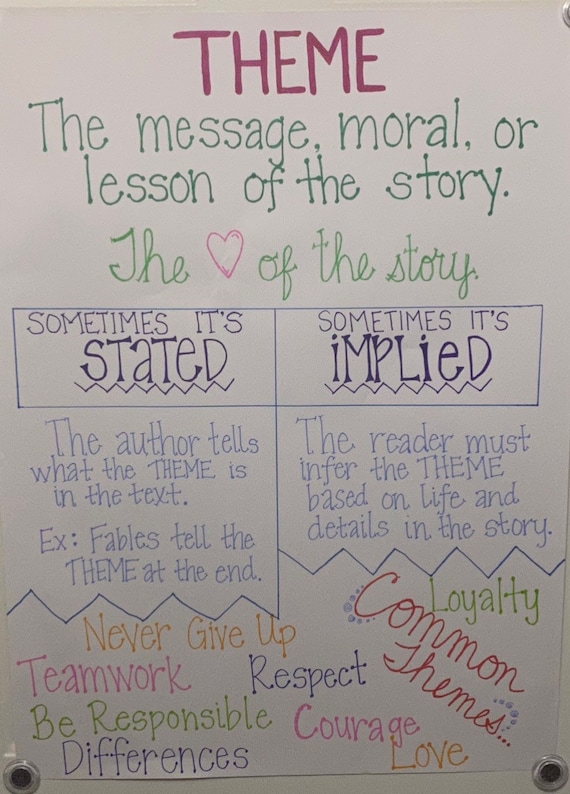 THEME
The message, moral, or
lesson of the story.
The ♡ of the story.
SOMETIMES IT'S
STATED
The author tells
what the THEME is
in the text.
Ex: Fables tell the
THEME at the end.
SOMETIMES IT'S
iMPLieD
The reader must
infer the THEME
based on life and
details in the story.
Common
Themes...
Loyalty
Never Give Up
Teamwork
Respect
Be Responsible
Courage
Differences
Love